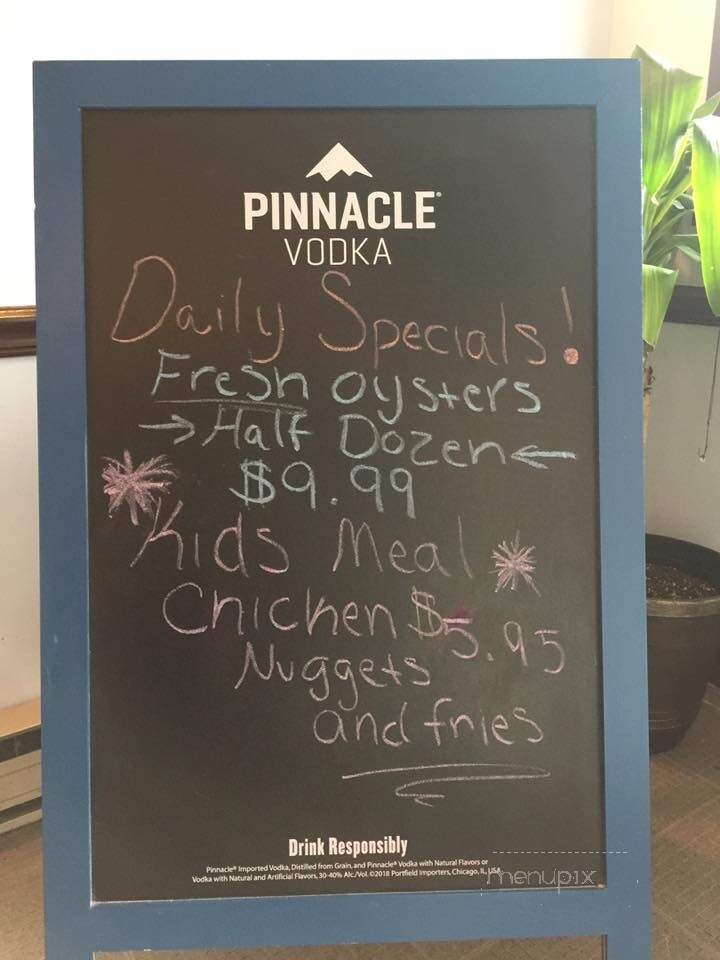 PINNACLE®
VODKA
Daily Specials!
Fresh oysters
→ Half Dozen ←
$9.99
Kids Meal
Chicken $5.95
Nuggets
and fries
Drink Responsibly
Pinnacle® Imported Vodka, Distilled from Grain, and Pinnacle® Vodka with Natural Flavors or
Vodka with Natural and Artificial Flavors, 30-40% Alc./Vol. ©2018 Portfield Importers, Chicago, IL, USA
menupix